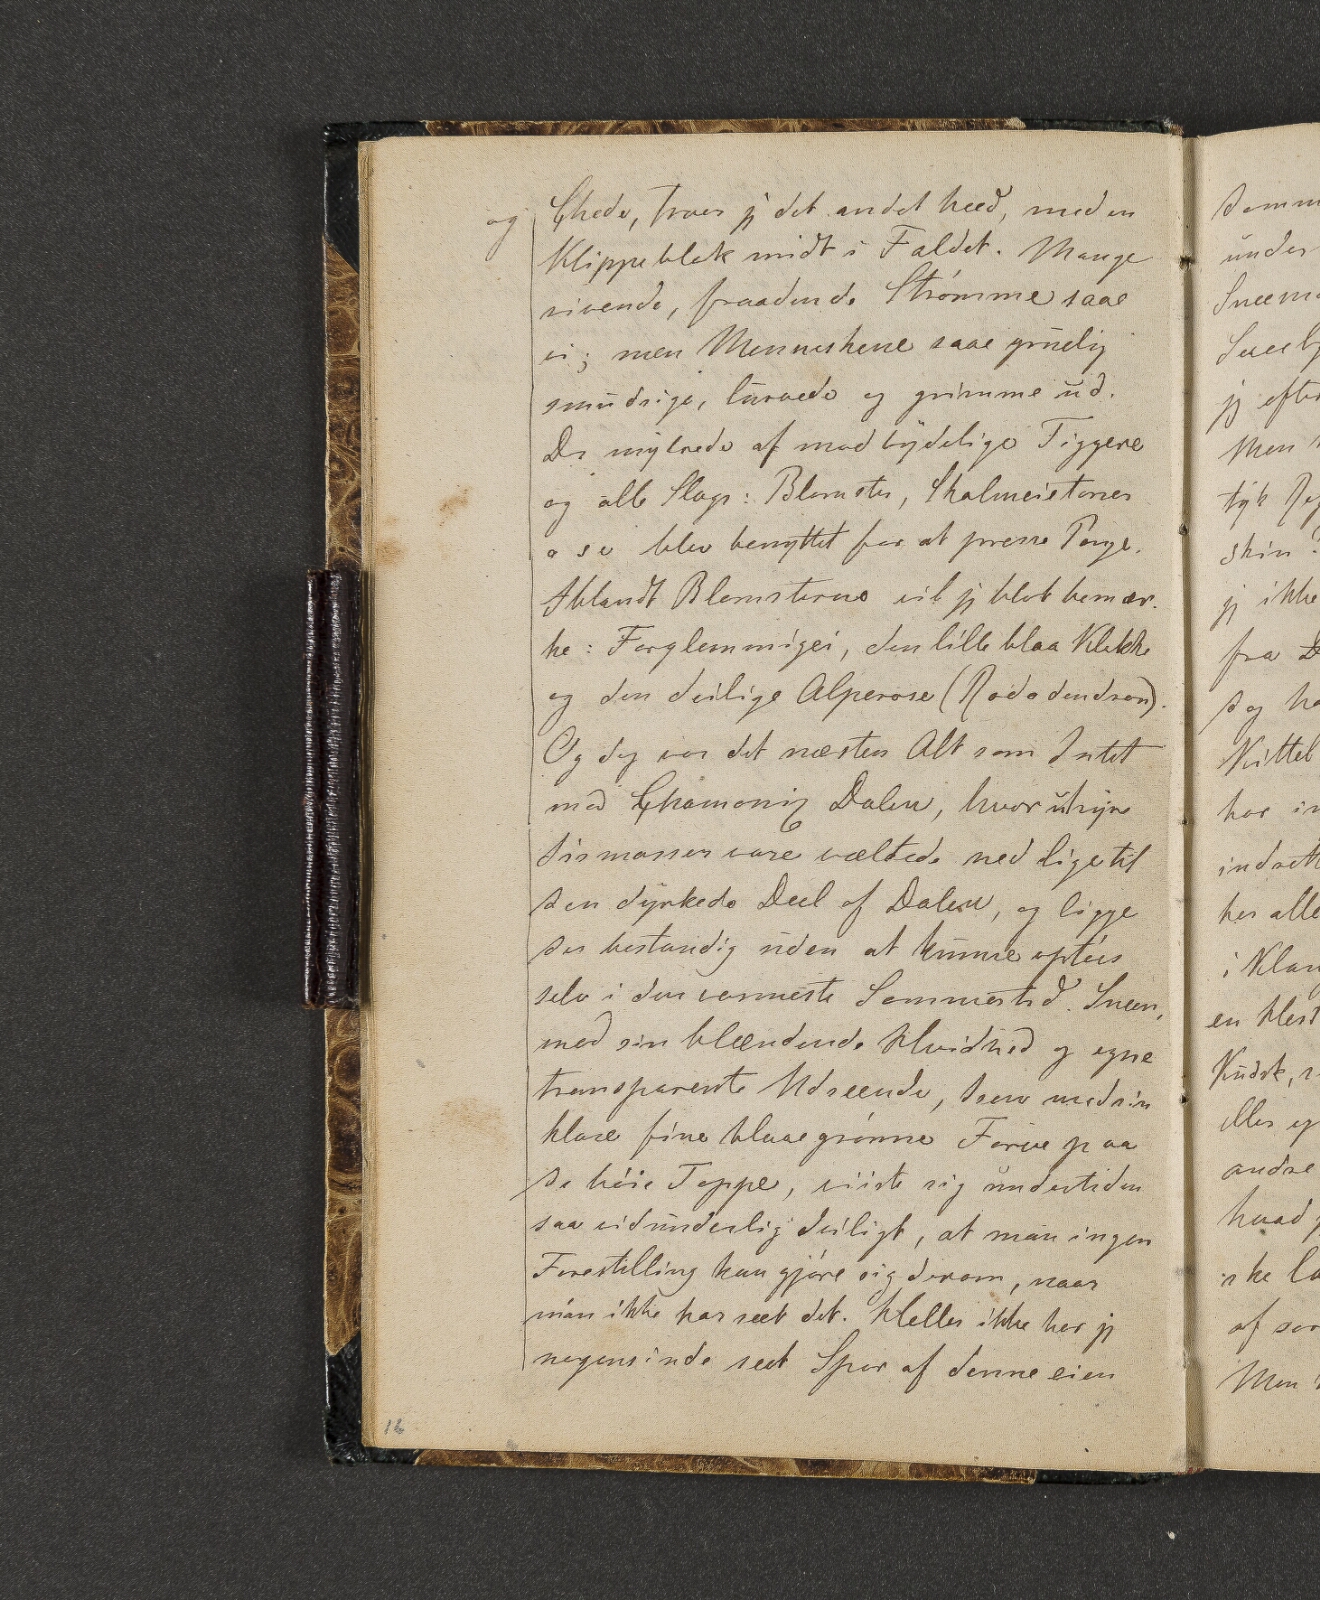 og Chede, troer jeg det andet heed, med en
Klippeblok midt i Faldet. Mange
rivende, fraadende Strömme saae
vi; men Menneskene saae gruelig
smudsige, lurvede og grimme ud.
De mylrede af modbydelige Tiggere
og alle Slags: Blomster, Skalmeietoner
o s v blev benyttet for at presse Penge.
Iblandt Blomsterne vil jeg blot bemær-
ke: Forglemmigei, den lille blaa Klokke
og den deilige Alperose (Rododendron).
Og dog var det næsten Alt som Intet
mod Chamoniz Dalen, hvor uhyre
Iismasser vare væltede ned lige til
den dyrkede Deel af Dalen, og ligge
der bestandig uden at kunne optöes
selv i den varmeste Sommertid. Sneen,
med sin blændende Hvidhed og egne
transparente Udseende, Isen med sin
klare fine blaaegrönne Farve paa
de höie Toppe, viiste sig undertiden
saa vidunderlig deiligt, at man ingen
Forestilling kan gjöre sig derom, naar
man ikke har seet det. Heller ikke har jeg
nogensinde seet Spor af denne eien
16
under
jeg efter
Men
tyk
skin
jeg ikke
fra
og
har
her alle
i
en
andre
hvad
af
Men